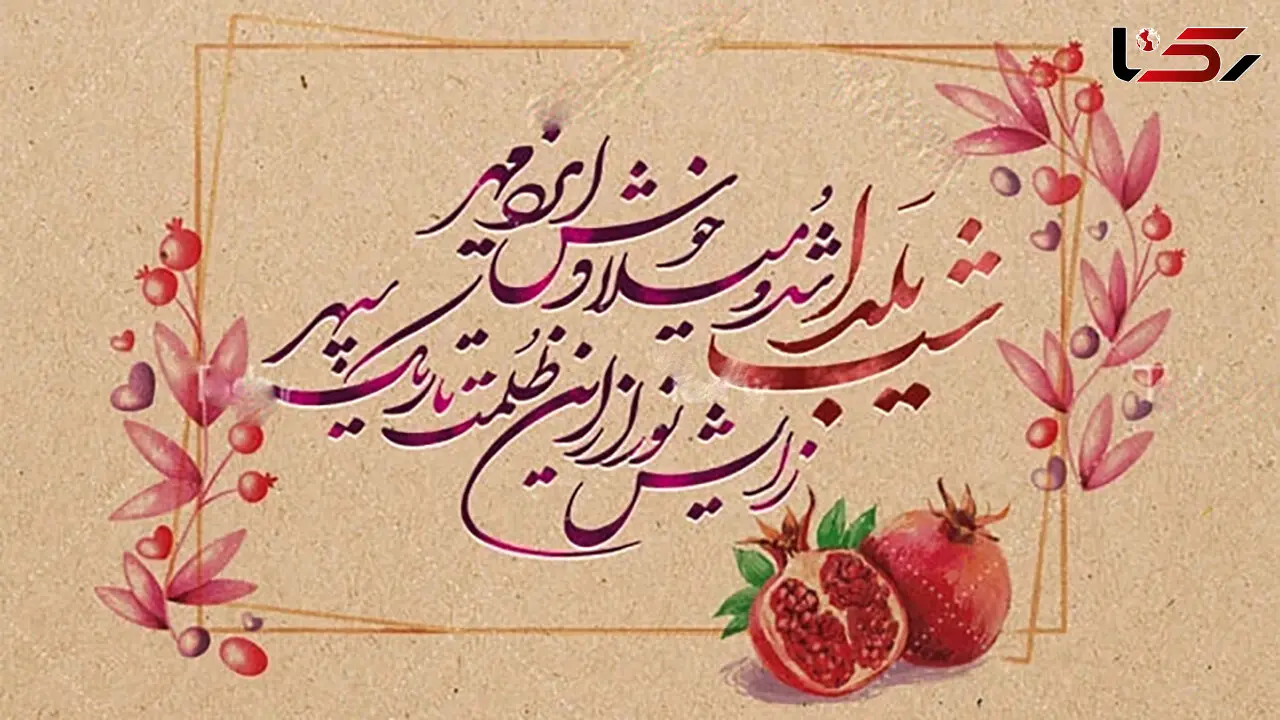 رکنا
شب یَلدا شُد و میلاد خوش ایزد مهر
زایش نور از این ظُلمت تاریک سپهر